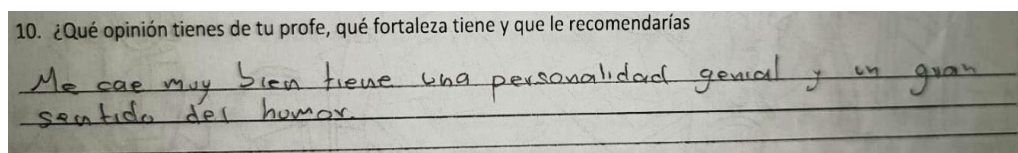 10. ¿Qué opinión tienes de tu profe, qué fortaleza tiene y que le recomendarías
Me cae muy bien tiene una personalidad genial y un gran
sentido del humor.